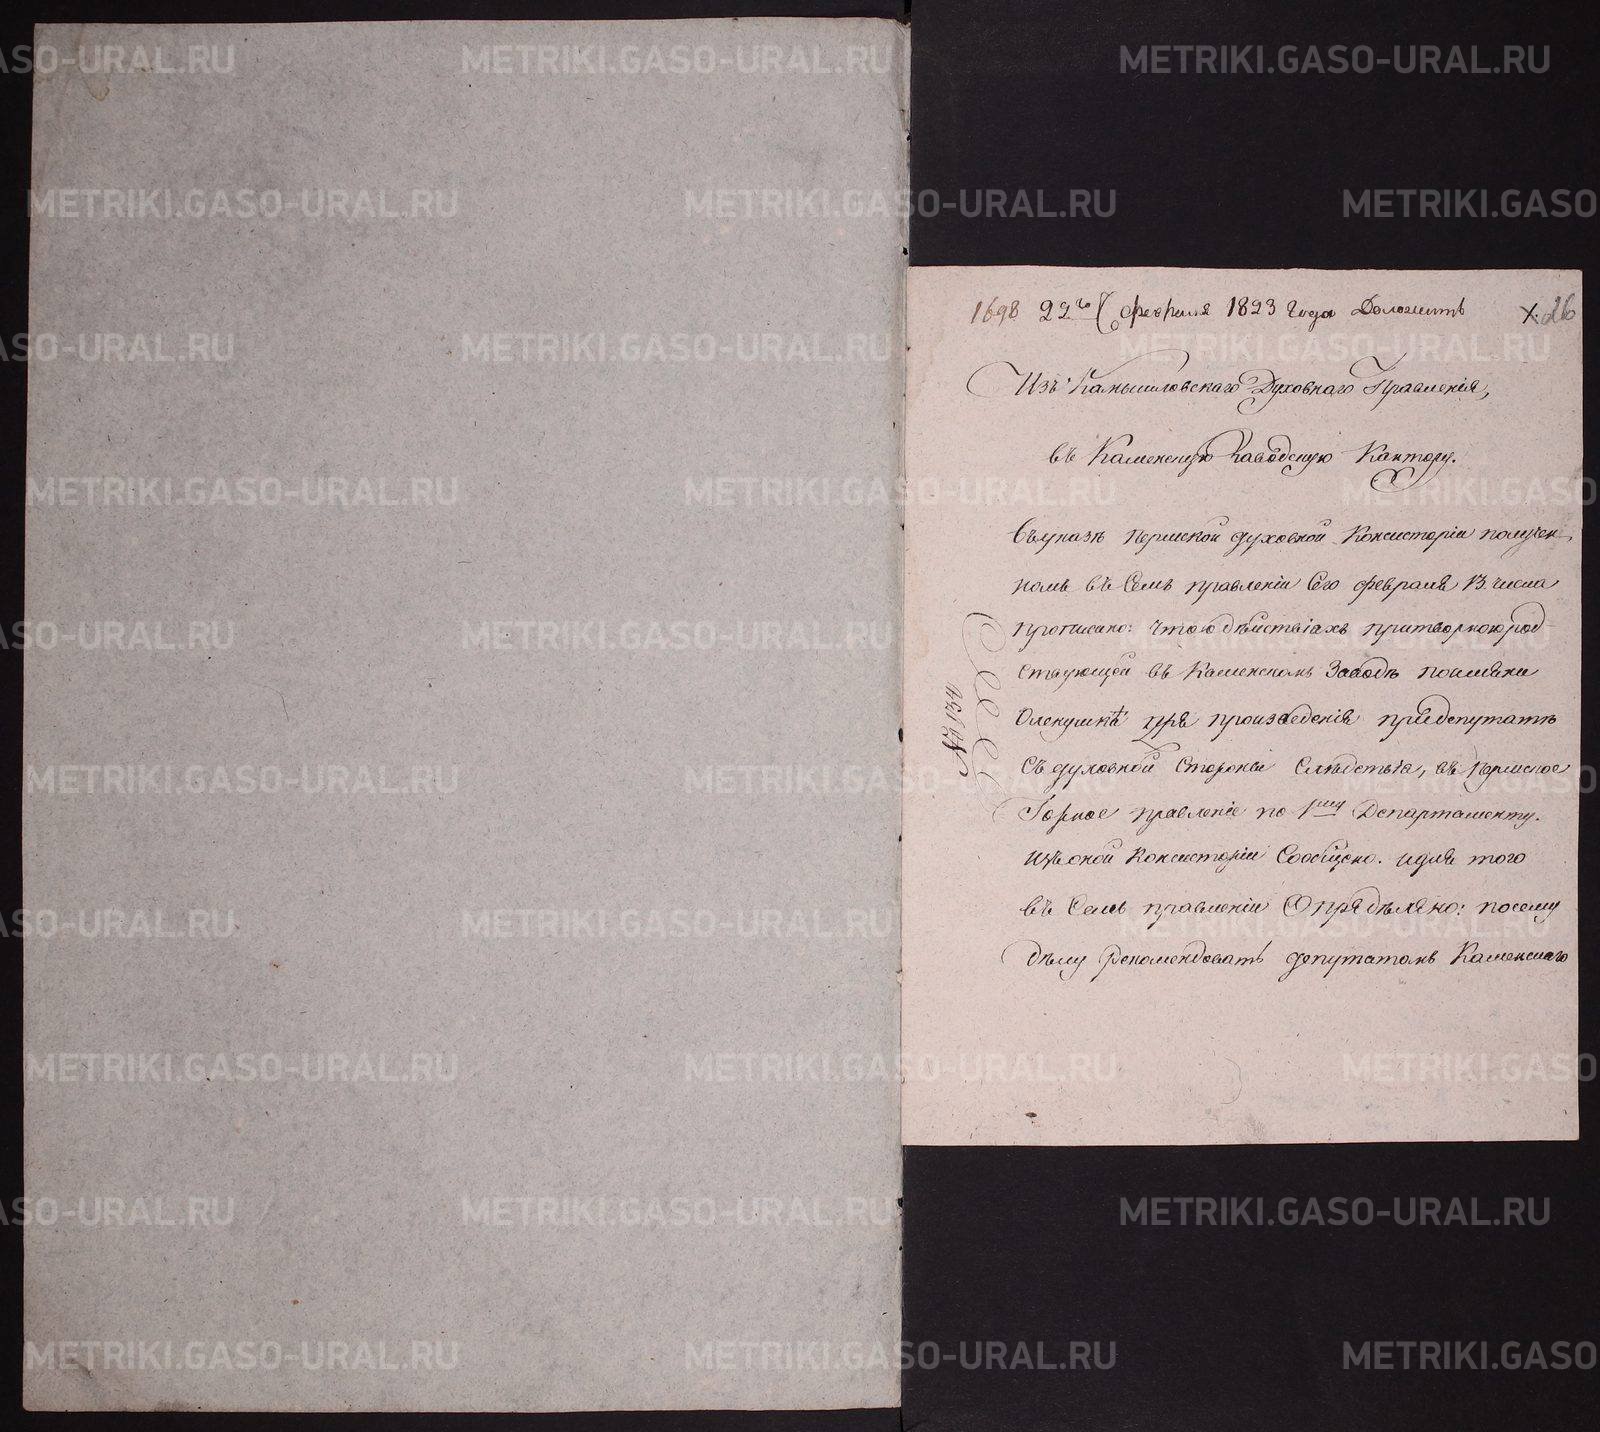 1698 22го февраля 1823 года Доложить
26
Изъ Камышловскаго Духовнаго Правленія,
въ Каменскую Заводскую Кантору.
Въ указѣ Пермской духовной Консисторіи получен-
номъ въ Семъ правленіи Сего февраля 13 числа
прописано: что о дѣйствіахъ притворно юрод-
ствующей въ Каменскомъ Заводѣ
при произведеніи при депутатѣ
Съ духовной Стороны Слѣдствіа, въ Пермское
Горное правленіе по 1му Департаменту.
изъ оной Консисторіи Сообщено. и для того
въ Семъ правленіи Опредѣлено: по сему
дѣлу Рекомендовать депутатомъ Каменскаго
METRIKI.GASO-URAL.RU